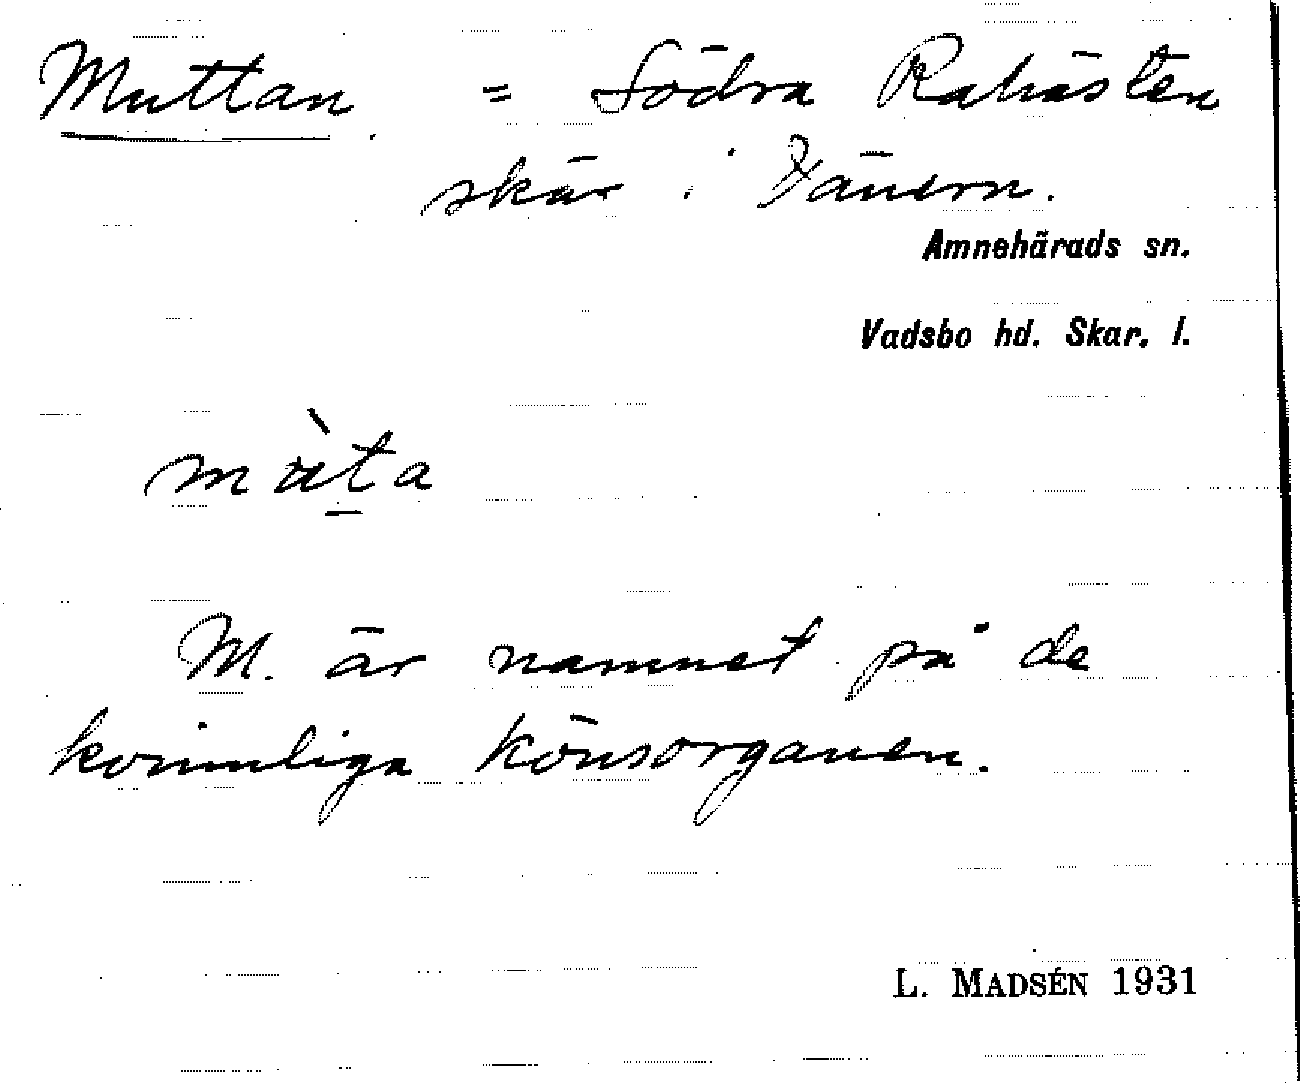 Muttan. = Södra Rahästen
skär i Vänern.
Amnehärads sn.
Vadsbo hd. Skar. l.
M. är namnet på de
kvinnliga könsorganen.
L. MADSÉN 1931